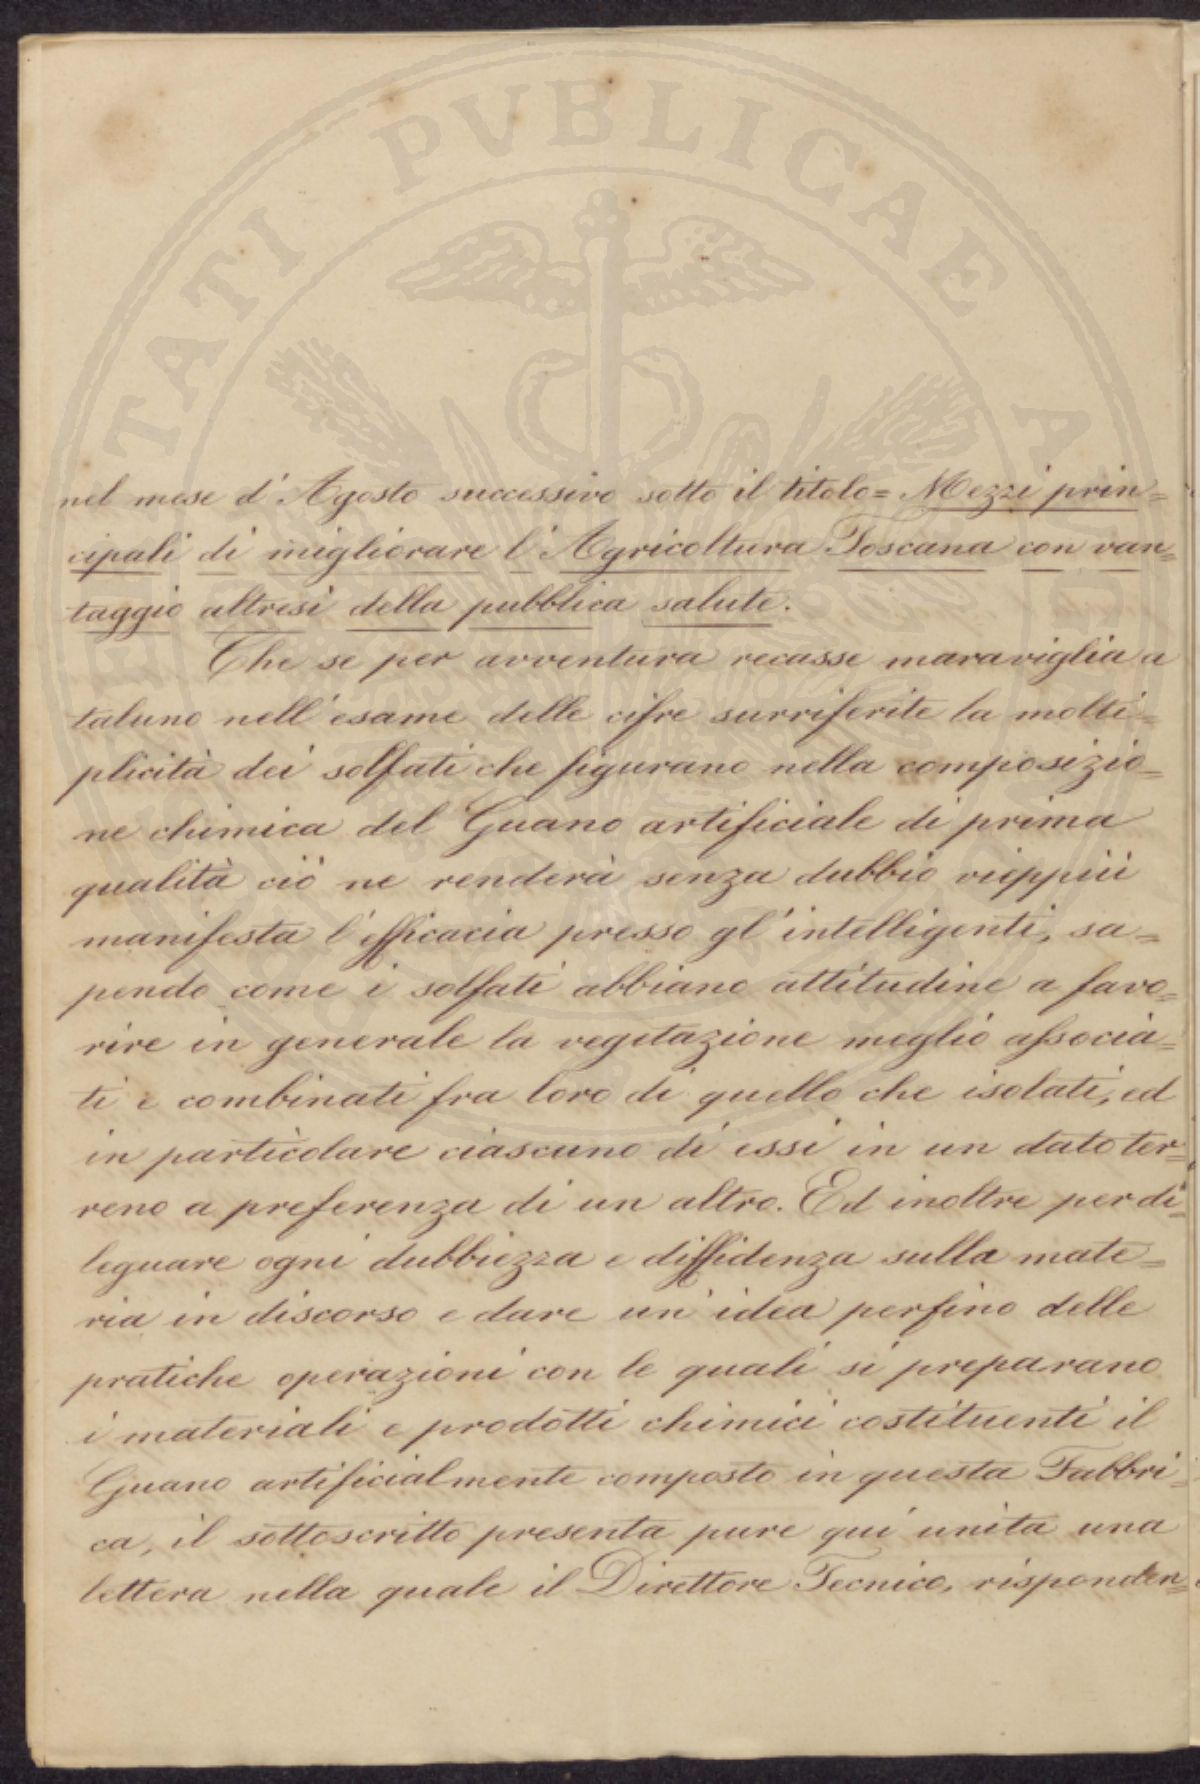 nel mese d'Agosto successivo sotto il titolo= Mezzi prin=
cipali di migliorare l'Agricoltura Toscana con van=
taggio altresì della pubblica salute.
Che se per avventura recasse maraviglia a
taluno nell'esame delle cifre surriferite la molti=
plicità dei solfati che figurano nella composizio=
ne chimica del Guano artificiale di prima
qualità ciò ne renderà senza dubbio vieppiù
manifesta l'efficacia presso gl'intelligenti, sa=
pendo come i solfati abbiano attitudine a favo=
rire in generale la vegetazione meglio associa=
ti e combinati fra loro di quello che isolati, ed
in particolare ciascuno di essi in un dato ter=
reno a preferenza di un altro. Ed inoltre per di=
leguare ogni dubbiezza e diffidenza sulla mate=
ria in discorso e dare un'idea perfino delle
pratiche operazioni con le quali si preparano
i materiali e prodotti chimici costituenti il
Guano artificialmente composto in questa Fabbri=
ca, il sottoscritto presenta pure qui unita una
lettera nella quale il Direttore Tecnico, risponden=
PUBLICAE